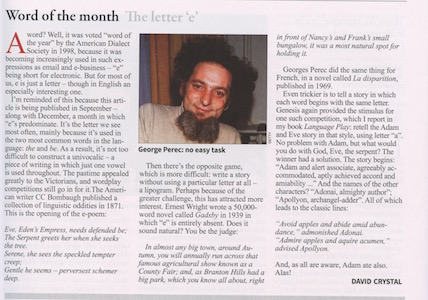 Word of the month The letter 'e'
A word? Well, it was voted "word of
the year" by the American Dialect
Society in 1998, because it was
becoming increasingly used in such ex-
pressions as email and e-business – "e"
being short for electronic. But for most of
us, e is just a letter – though in English an
especially interesting one.
I'm reminded of this because this arti-
cle is being published in September –
along with December, a month in which
"e"s predominate. It's the letter we see
most often, mainly because it's used in
the two most common words in the lan-
guage: the and be. As a result, it's not too
difficult to construct a univocalic – a
piece of writing in which just one vowel
is used throughout. The pastime appealed
greatly to the Victorians, and wordplay
competitions still go in for it.The Ameri-
can writer CC Bombaugh published a
collection of linguistic oddities in 1871.
This is the opening of the e-poem:
Eve, Eden's Empress, needs defended be;
The Serpent greets her when she seeks
the tree.
Serene, she sees the speckled tempter
creep;
Gentle he seems – perversest schemer
deep.
George Perec: no easy task
Then there's the opposite game,
which is more difficult: write a story
without using a particular letter at all –
a lipogram. Perhaps because of the
greater challenge, this has attracted more
interest. Ernest Wright wrote a 50,000-
word novel called Gadsby in 1939 in
which "e" is entirely absent. Does it
sound natural? You be the judge:
In almost any big town, around Au-
tumn, you will annually run across that
famous agricultural show known as a
County Fair; and, as Branton Hills had a
big park, which you know all about, right
in front of Nancy's and Frank's small
bungalow, it was a most natural spot for
holding it.
Georges Perec did the same thing for
French, in a novel called La disparition,
published in 1969.
Even trickier is to tell a story in which
each word begins with the same letter.
Genesis again provided the stimulus for
one such competition, which I report in
my book Language Play: retell the Adam
and Eve story in that style, using letter "a".
No problem with Adam, but what would
you do with God, Eve, the serpent? The
winner had a solution. The story begins:
"Adam and alert associate, agreeably ac-
commodated, aptly achieved accord and
amiability ..." And the names of the other
characters? "Adonai, almighty author";
"Apollyon, archangel-adder". All of which
leads to the classic lines:
"Avoid apples and abide amid abun-
dance," admonished Adonai.
"Admire apples and aquire acumen,"
advised Apollyon.
And, as all are aware, Adam ate also.
Alas!
DAVID CRYSTAL